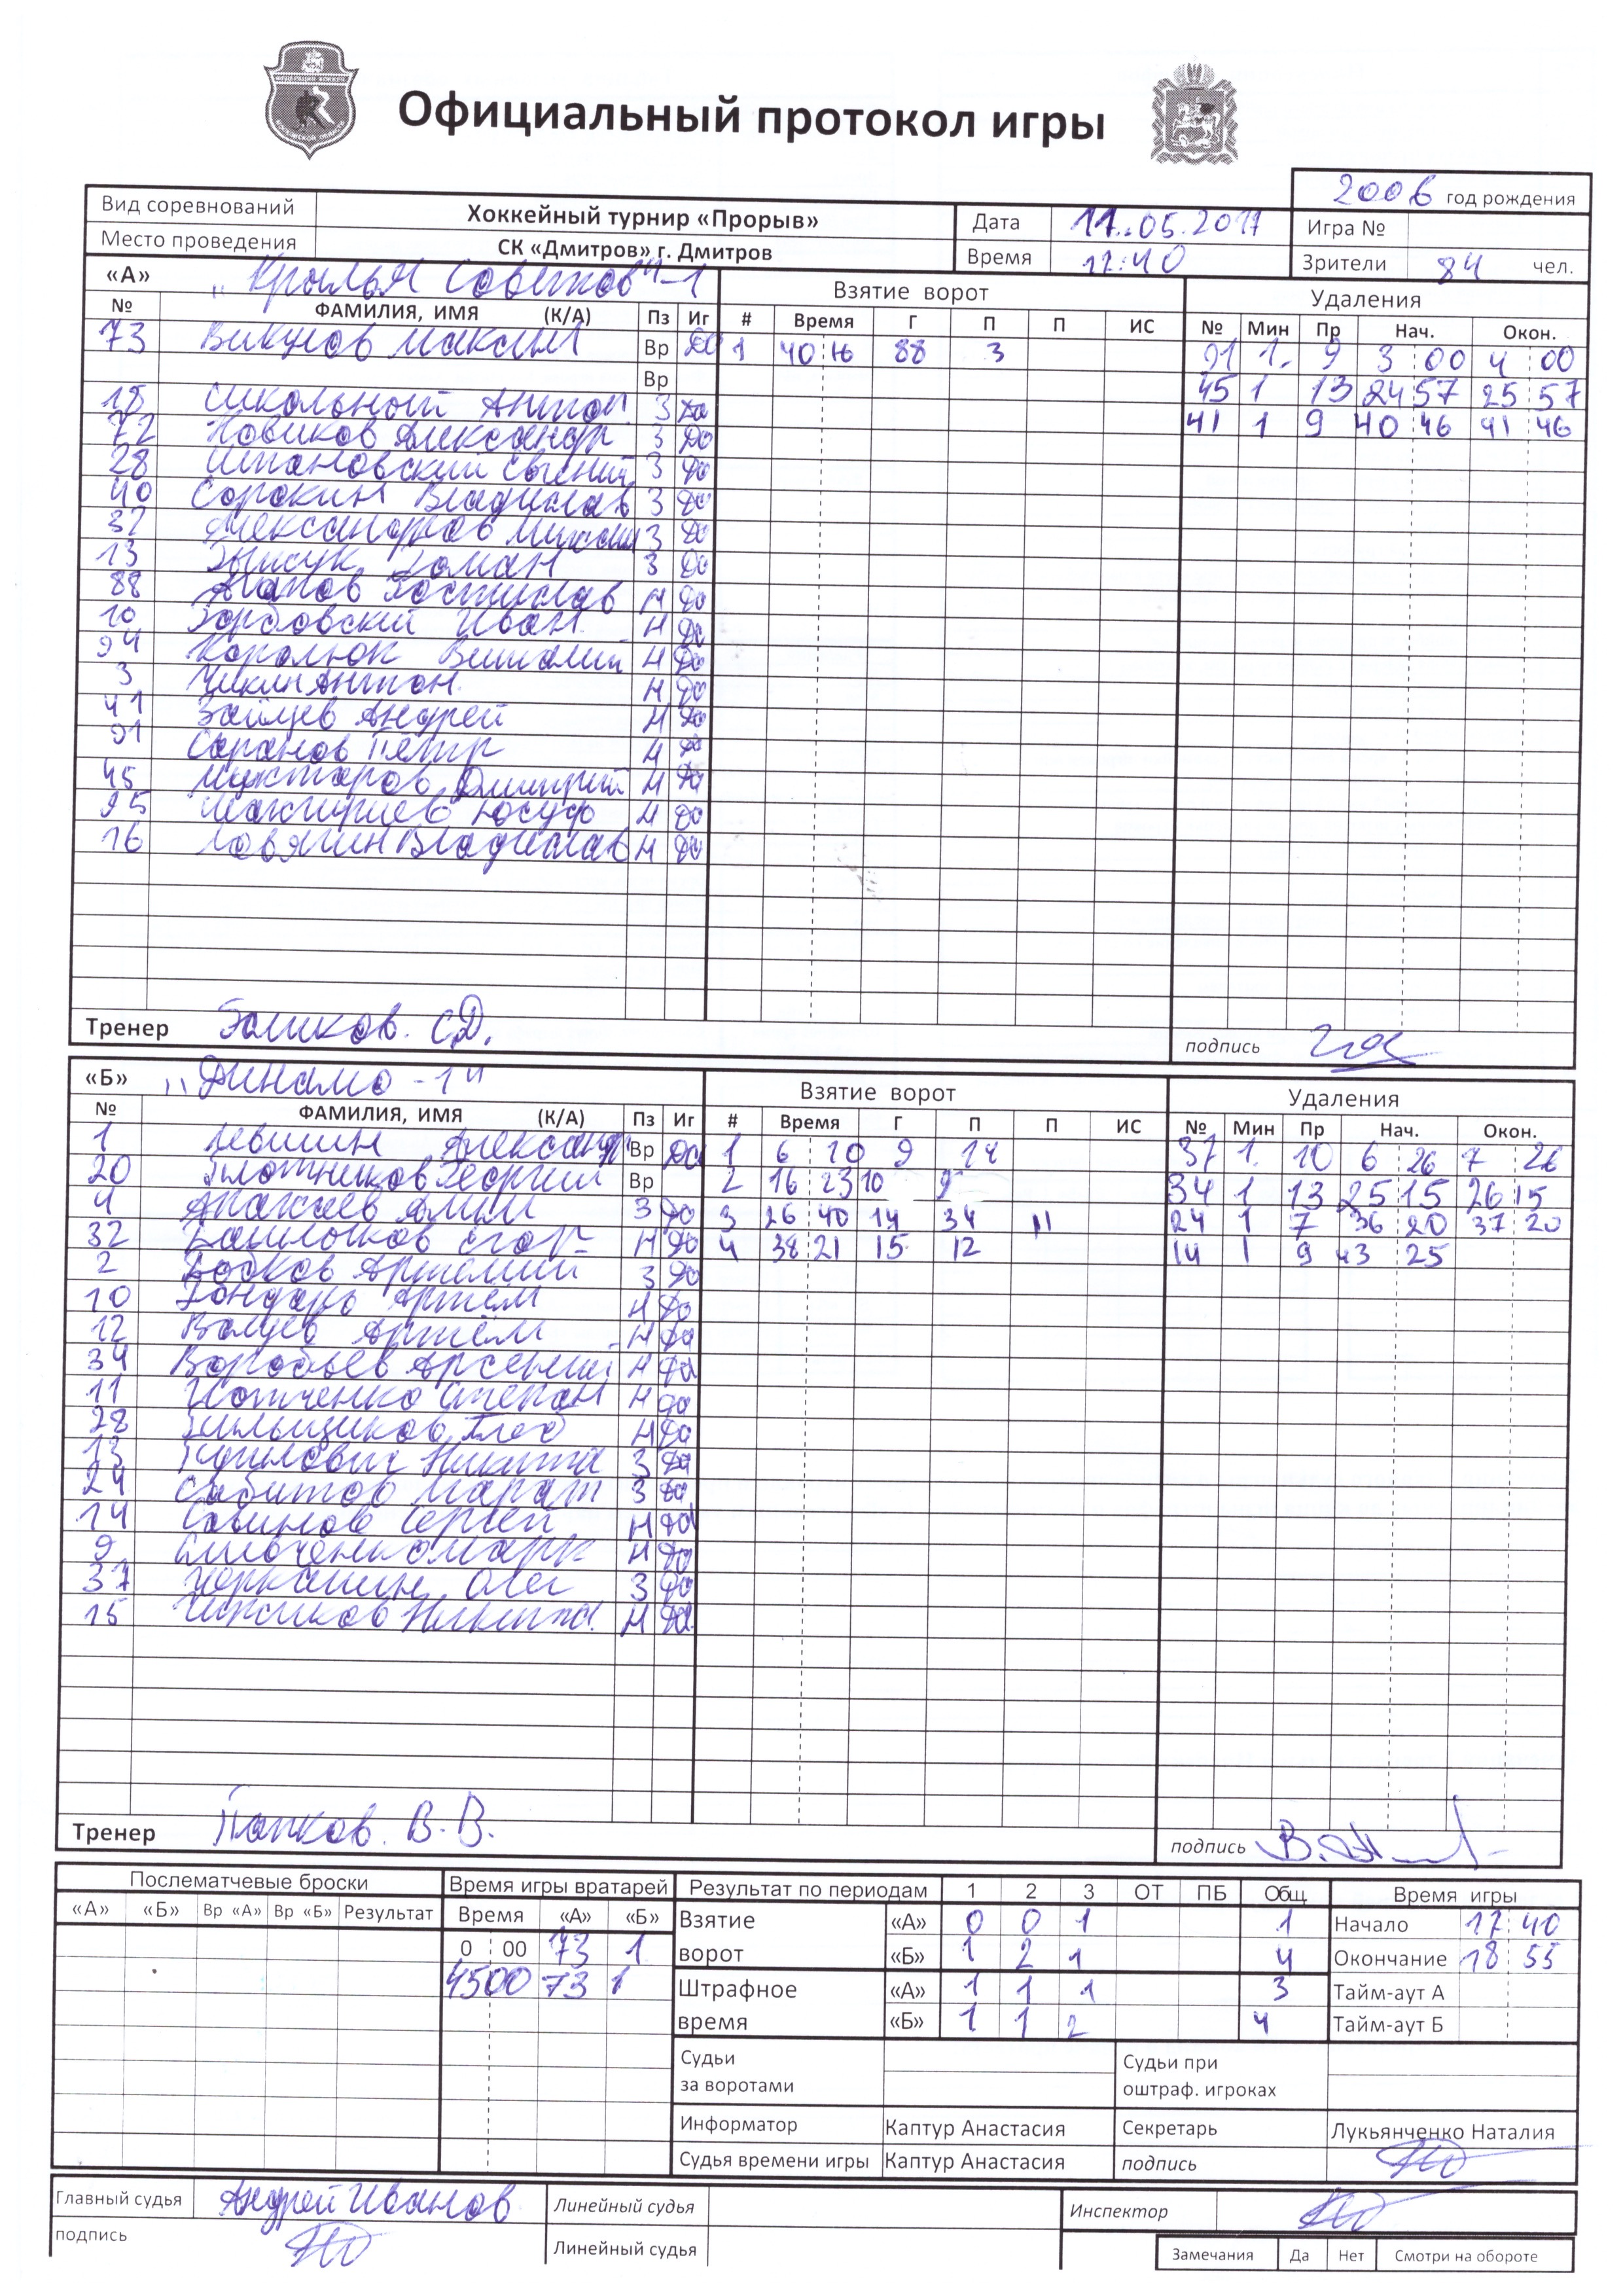 Официальный протокол игры
2006 год рождения
Вид соревнований Хоккейный турнир «Прорыв» Дата 11.05.2017 Игра №
Место проведения СК «Дмитров» г. Дмитров Время 17:40 Зрители 84 чел.
«А» "Крылья Советов"-1 Взятие ворот Удаления
№ ФАМИЛИЯ, ИМЯ (К/А) Пз Иг # Время Г П П ИС № Мин Пр Нач. Окон.
73 Викулов Максим Вр Да 1 40 16 88 3 91 1 9 3 00 4 00
Вр 45 1 13 24 57 25 57
18 Сикольный Антон З Да 41 1 9 40 46 41 46
72 Новиков Александр З Да
28 Штановский Евгений З Да
40 Сорокин Владислав З Да
37 Александров З Да
13 Роман З Да
88 Агапов Ростислав Н Да
10 Горбовский Иван Н Да
94 Королюк Виталий Н Да
3 Чикин Антон Н Да
41 Зайцев Андрей Н Да
91 Саранов Петр Н Да
45 Мухтаров Дмитрий Н Да
95 Юсуф Н Да
16 Ловягин Владислав Н Да
Тренер С.Д. подпись
«Б» "Динамо-1" Взятие ворот Удаления
№ ФАМИЛИЯ, ИМЯ (К/А) Пз Иг # Время Г П П ИС № Мин Пр Нач. Окон.
1 Левшин Александр Вр Да 1 6 10 9 14 37 1 10 6 26 7 26
20 Плотников Георгий Вр 2 16 23 10 9 34 1 13 25 15 26 15
4 З Да 3 26 40 14 34 11 24 1 7 36 20 37 20
32 Егор Н Да 4 38 21 15 12 14 1 9 43 25
2 Бобков Артемий З Да
10 Бондарь Артём Н Да
12 Валуев Артём Н Да
34 Воробьев Арсений Н Да
11 Степан Н Да
28 Пильщиков Глеб Н Да
13 Никита З Да
24 Сабитов Марат З Да
14 Савинов Сергей Н Да
9 Сильченко Марк Н Да
37 Черкашин Олег З Да
15 Чириков Никита Н Да
Тренер Папков В.В. подпись
Послематчевые броски Время игры вратарей Результат по периодам 1 2 3 ОТ ПБ Общ. Время игры
«А» «Б» Вр «А» Вр «Б» Результат Время «А» «Б» Взятие «А» 0 0 1 1 Начало 17 40
0 00 73 1 ворот «Б» 1 2 1 4 Окончание 18 55
45 00 73 1 Штрафное «А» 1 1 1 3 Тайм-аут А
время «Б» 1 1 2 4 Тайм-аут Б
Судьи за воротами Судьи при оштраф. игроках
Информатор Каптур Анастасия Секретарь Лукьянченко Наталия
Судья времени игры Каптур Анастасия подпись
Главный судья Андрей Иванов Линейный судья Инспектор
подпись Линейный судья
Замечания Да Нет Смотри на обороте